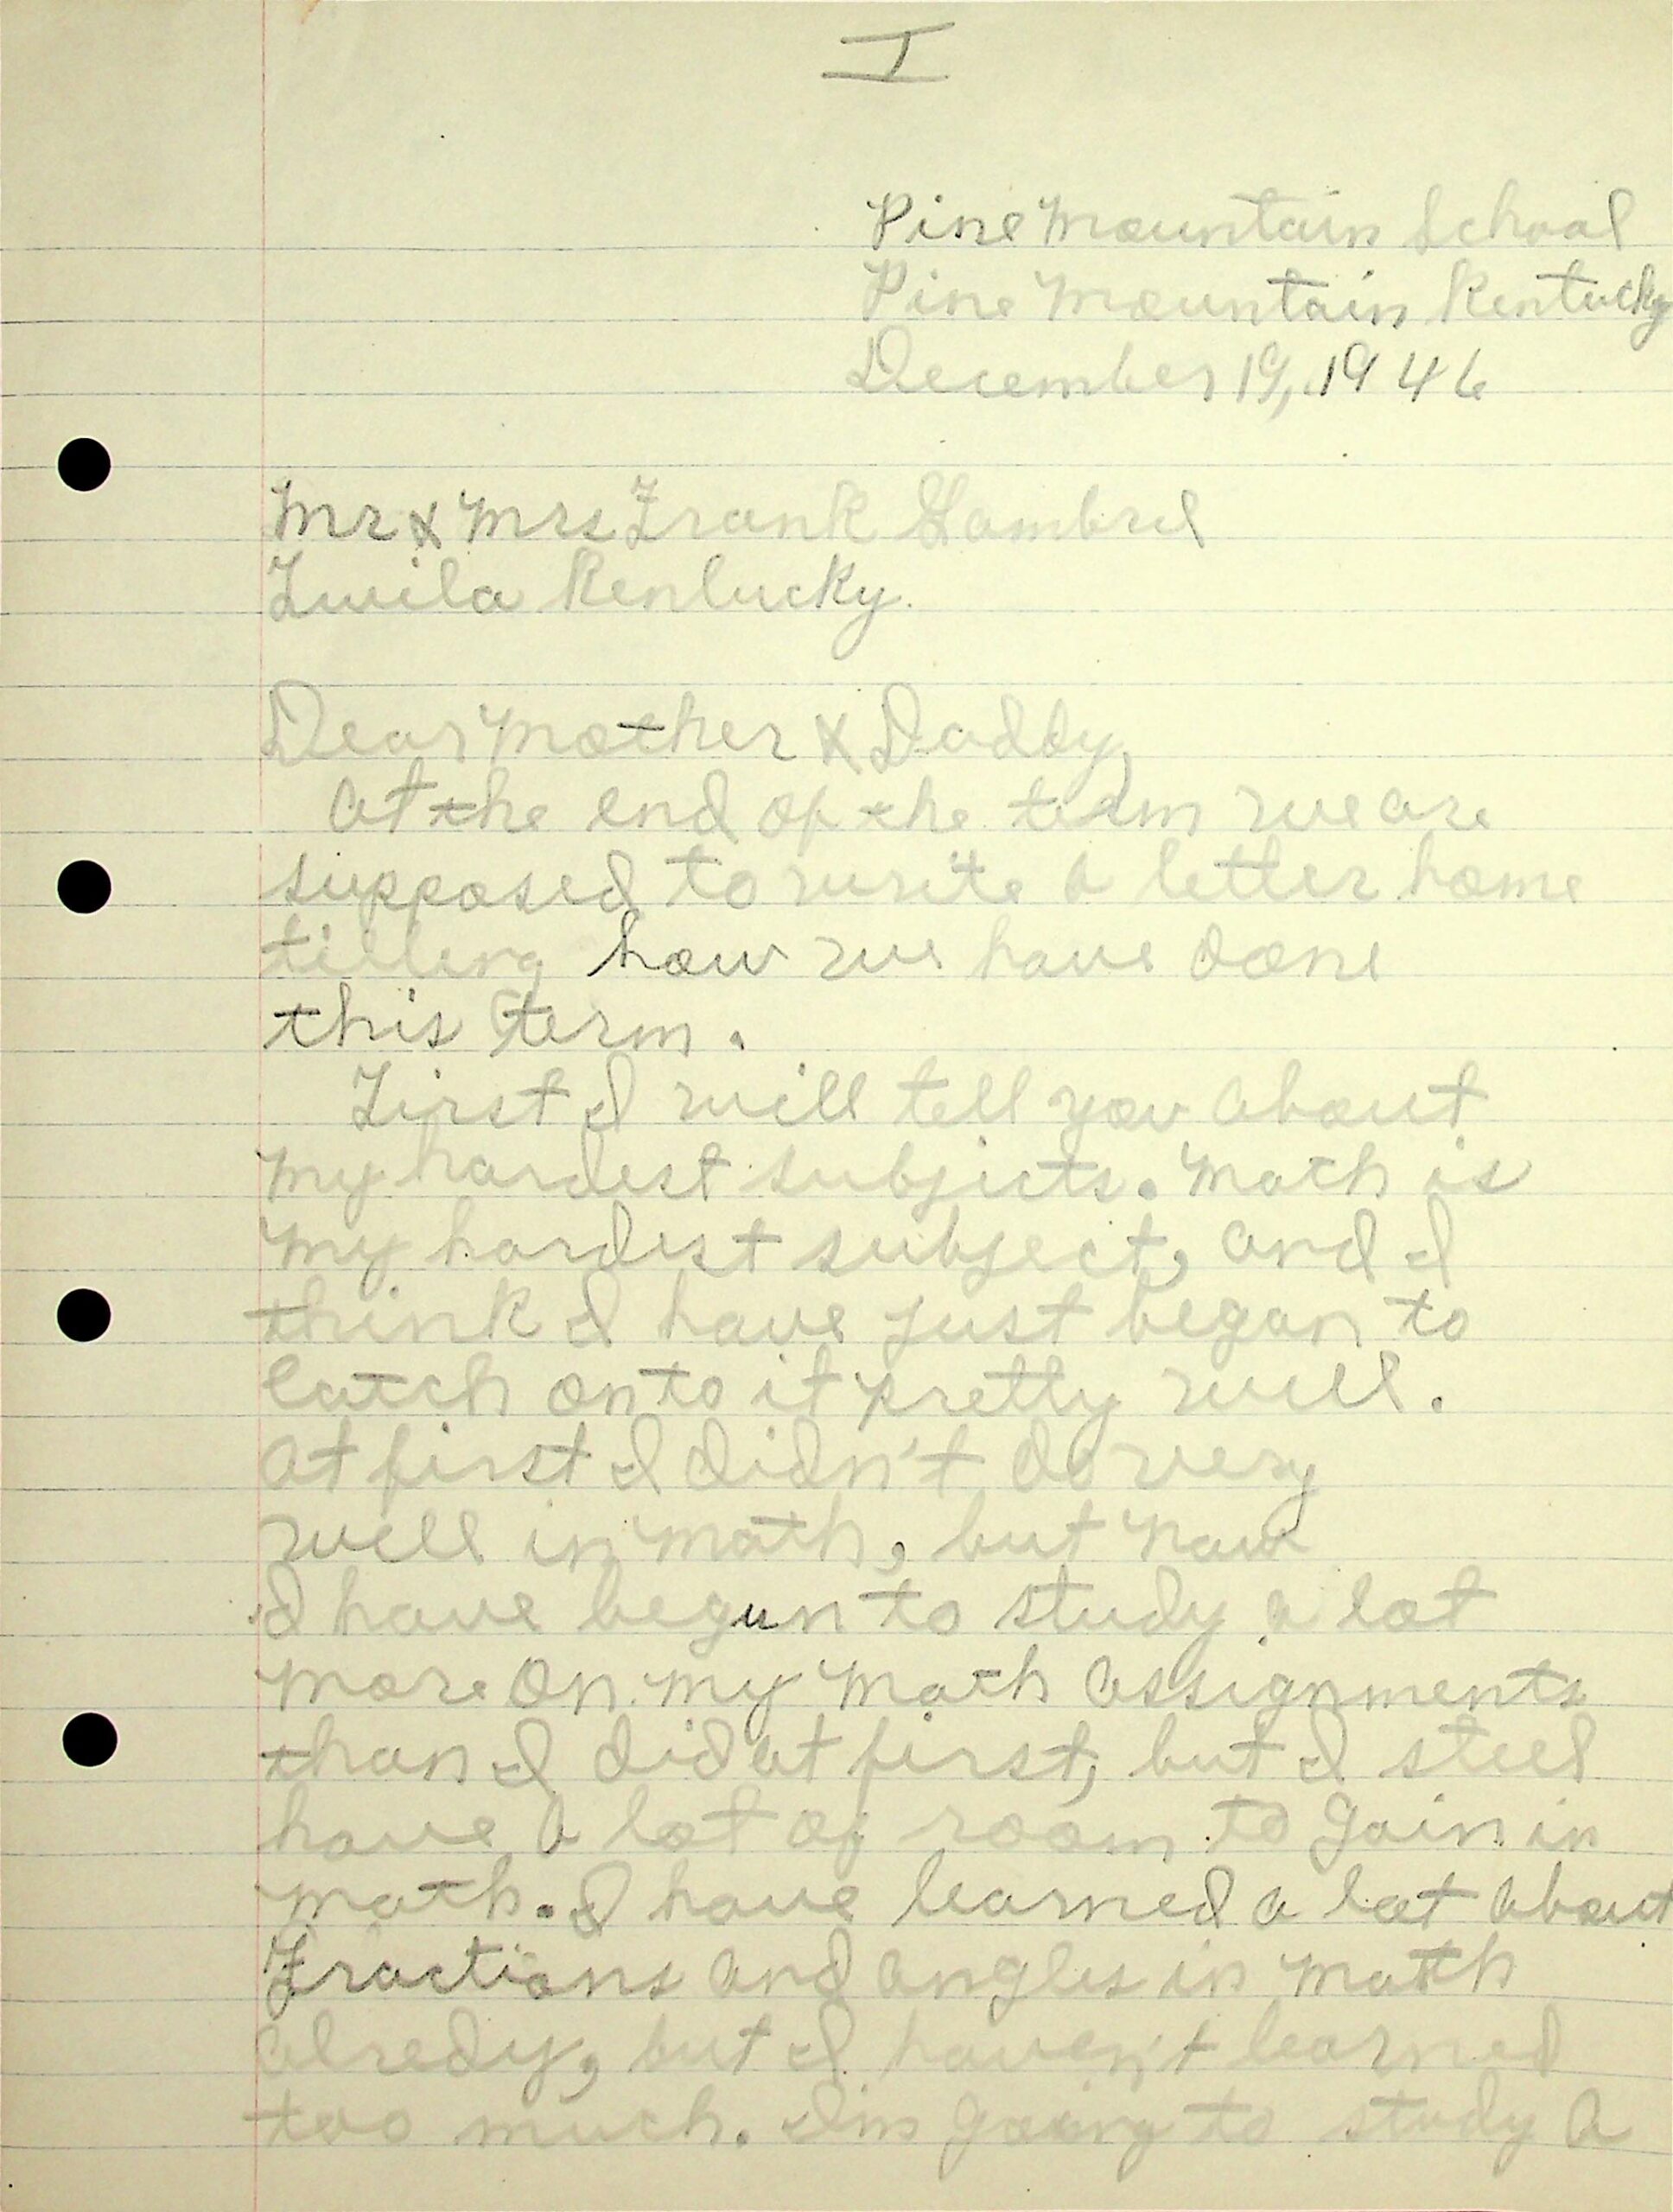 I
Pine Mountain School
Pine Mountain Kentucky
December 19, 1946
Mr & Mrs Frank Gambrel
Twila Kentucky.
Dear Mother & Daddy,
At the end of the term we are
supposed to write a letter home
telling how we have done
this term.
First I will tell you about
my hardest subjects. Math is
my hardest subject, and I
think I have just began to
catch onto it pretty well.
At first I didn't do very
well in math, but now
I have begun to study a lot
more on my math assignments
than I did at first, but I still
have a lot of room to gain in
math. I have learned a lot about
Fractions and angles in math
alredy, but I haven't learned
too much. I'm going to study a